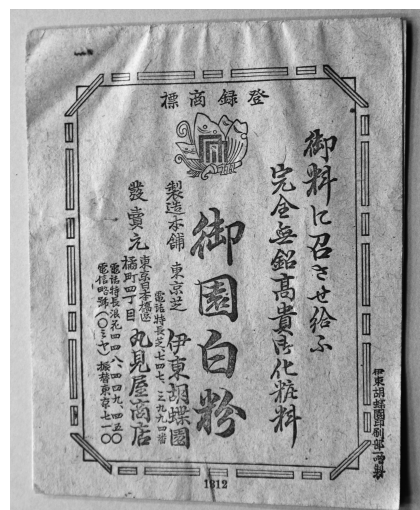 登録商標
御料に召させ給ふ
完全無鉛高貴御化粧料
御園白粉
製造本舗 東京芝 伊東胡蝶園
電話特長芝七四七、三九九四番
發賣元 東京日本橋區橘町四丁目 丸見屋商店
電話特長浪花四四八、四四九、四五〇
電信略號(〇ミヤ) 振替東京七一〇
伊東胡蝶園印刷部一増製
1312